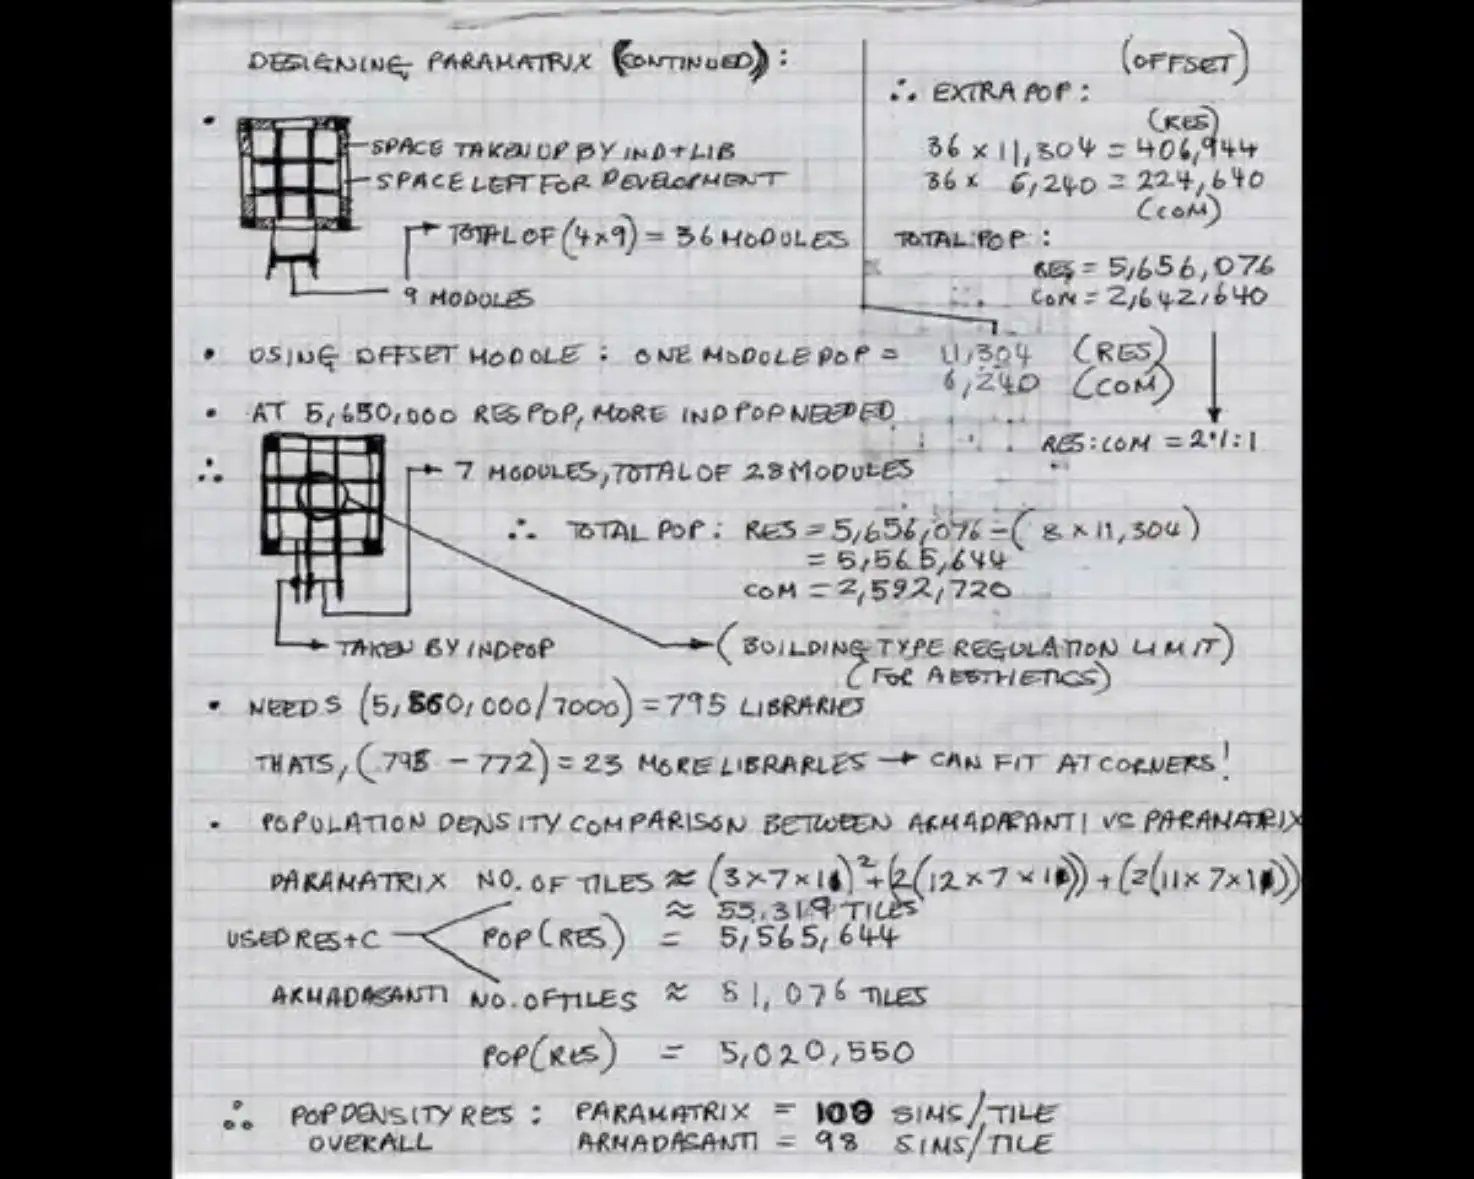 DESIGNING PARAMATRIX (CONTINUED):
SPACE TAKEN UP BY IND + LIB
SPACE LEFT FOR DEVELOPMENT
TOTAL OF (4x9) = 36 MODULES
9 MODULES
(OFFSET)
∴ EXTRA POP:
(RES)
36 x 11,304 = 406,944
36 x 6,240 = 224,640
(COM)
TOTAL POP:
RES = 5,656,076
COM = 2,642,640
RES:COM = 2.1:1
• USING OFFSET MODULE: ONE MODULE POP = 11,304 (RES)
6,240 (COM)
• AT 5,650,000 RES POP, MORE IND POP NEEDED
∴ 7 MODULES, TOTAL OF 28 MODULES
∴ TOTAL POP: RES = 5,656,076 - (8 x 11,304)
= 5,565,644
COM = 2,592,720
TAKEN BY IND POP
(BUILDING TYPE REGULATION LIMIT)
(FOR AESTHETICS)
• NEEDS (5,560,000/7000) = 795 LIBRARIES
THATS, (795 - 772) = 23 MORE LIBRARIES → CAN FIT AT CORNERS!
• POPULATION DENSITY COMPARISON BETWEEN VS PARAMATRIX
PARAMATRIX NO. OF TILES ≈ (3x7x11)² + (2(12x7x11)) + (2(11x7x11))
≈ 55,319 TILES
USED RES + C POP (RES) = 5,565,644
NO. OF TILES ≈ 51,076 TILES
POP (RES) = 5,020,550
∴ POP DENSITY RES: PARAMATRIX = 100 SIMS/TILE
OVERALL = 98 SIMS/TILE